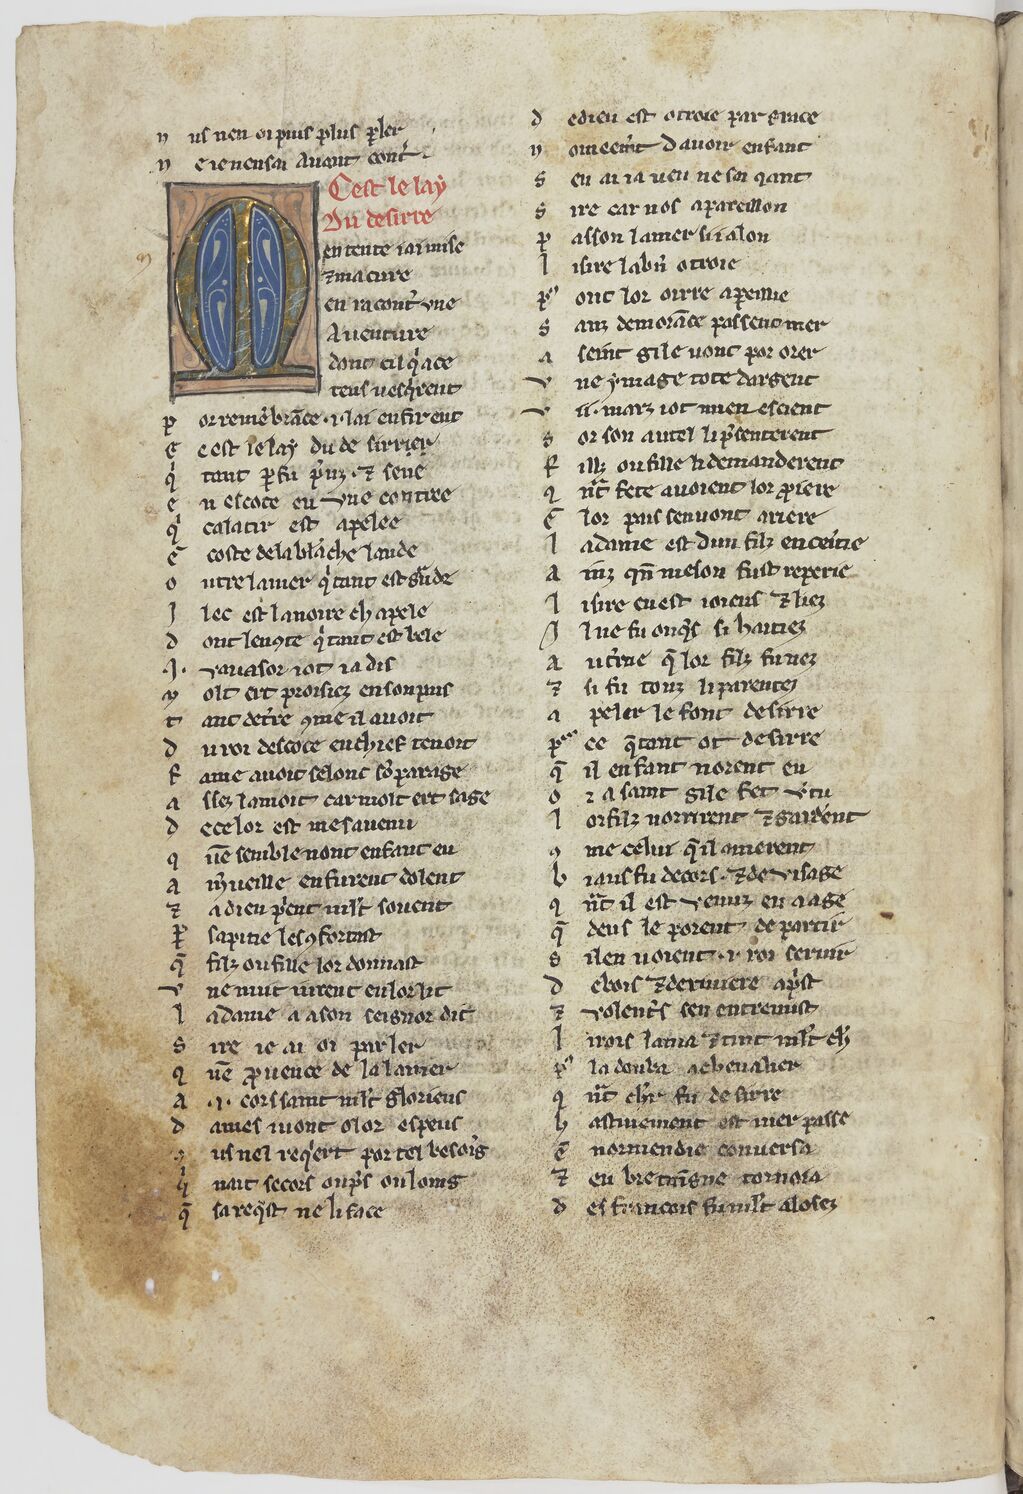 n us nen oi puis plus pler
n e ie nen sai auant cont̾.
Cest le lay
Du desirre
M
en tente i ai mise
⁊ ma cure
en racont̾ vne
Auenture
dont cil q̍ a ce
tens uesq̍rent
p or remēbrāce .i. lai en firent
C e est le lay du desirrier
q̍ tant p fu p̍uz ⁊ sene
e n escoce eu vne contree
q̍ calatir est apelee
E coste de la blāche lande
o utre la mer q̍ tant est gñde
I lec est la noire chapele
d ont len 9te q̍ tant est bele
.I. vauasor i ot ia dis
m olt ert proisiez en son puis
t ant det̾re 9me il auoit
d u roi descoce en chief tenoit
F ame auoit selonc so parage
a ssez lamoit car molt ert sage
d e ce lor est mesauenu
q uē semble nont enfant eu
a m̾ueille en furent dolent
⁊ a dieu p̍ent nuit souent
P sa pitie les 9fortast
q̄ filz ou fille lor donnast
v ne nuit iurent en lor lit
l a dame a a son seignor dit
S ire ie ai oi parler
q uē prouence de la la mer
a .i. cors saint mlt̾ glorieus
d ames i uont o lor espeus
n us nel req̍ert por tel besoīg
q̍ nait secors ou p̍s ou loing
q̄ sa req̍st ne li face
d e dieu est otroie par grace
n omeem̄t dauoir enfant
S en ai ia ueu ne sai qant
S ire car nos apareillon
p asson la mer si i alon
l i sire la bñ otroie
p̍ ont lor oirre apeillie
S anz demorāce passent mer
a seint gile uont por orer
v ne ymage tote dargent
v ii. marz i ot mien escient
s or son autel li p̍senterent
F illz ou fille li demanderent
q n̄t fete auoient lor priere
E lor pais sen uont ariere
l a dame est dun filz enceīte
A inz qn̄ mes on fust reperie
l i sire en est ioieus ⁊ liez
I l ne fu onq̍s si haitiez
a u t̾me q̄ lor filz fu nez
⁊ si fu touz li parentez
a peler le font desirre
p̍ ce q̄ tant ot desirre
q̄ il enfant norent eu
o r a saint gile fet v̾tu
l or filz norrirent ⁊ garderent
9 me celui q̄ il amerent
b iaus fu de cors ⁊ de visage
q n̄t il est venuz en aage
q̄ deus le porent departir
s il en uoient .i. roi seruir
d e bois ⁊ de riuiere ap̍st
⁊ volent̾s sen entremist
l i rois lama ⁊ tint mlt̾ ch̾
p̍ la douba a cheualier
q n̄t ch̾r fu desirre
h astiuement est mer passe
E normendie conuersa
⁊ en bretaīgne tornoia
d es francois fu mlt̾ alosez